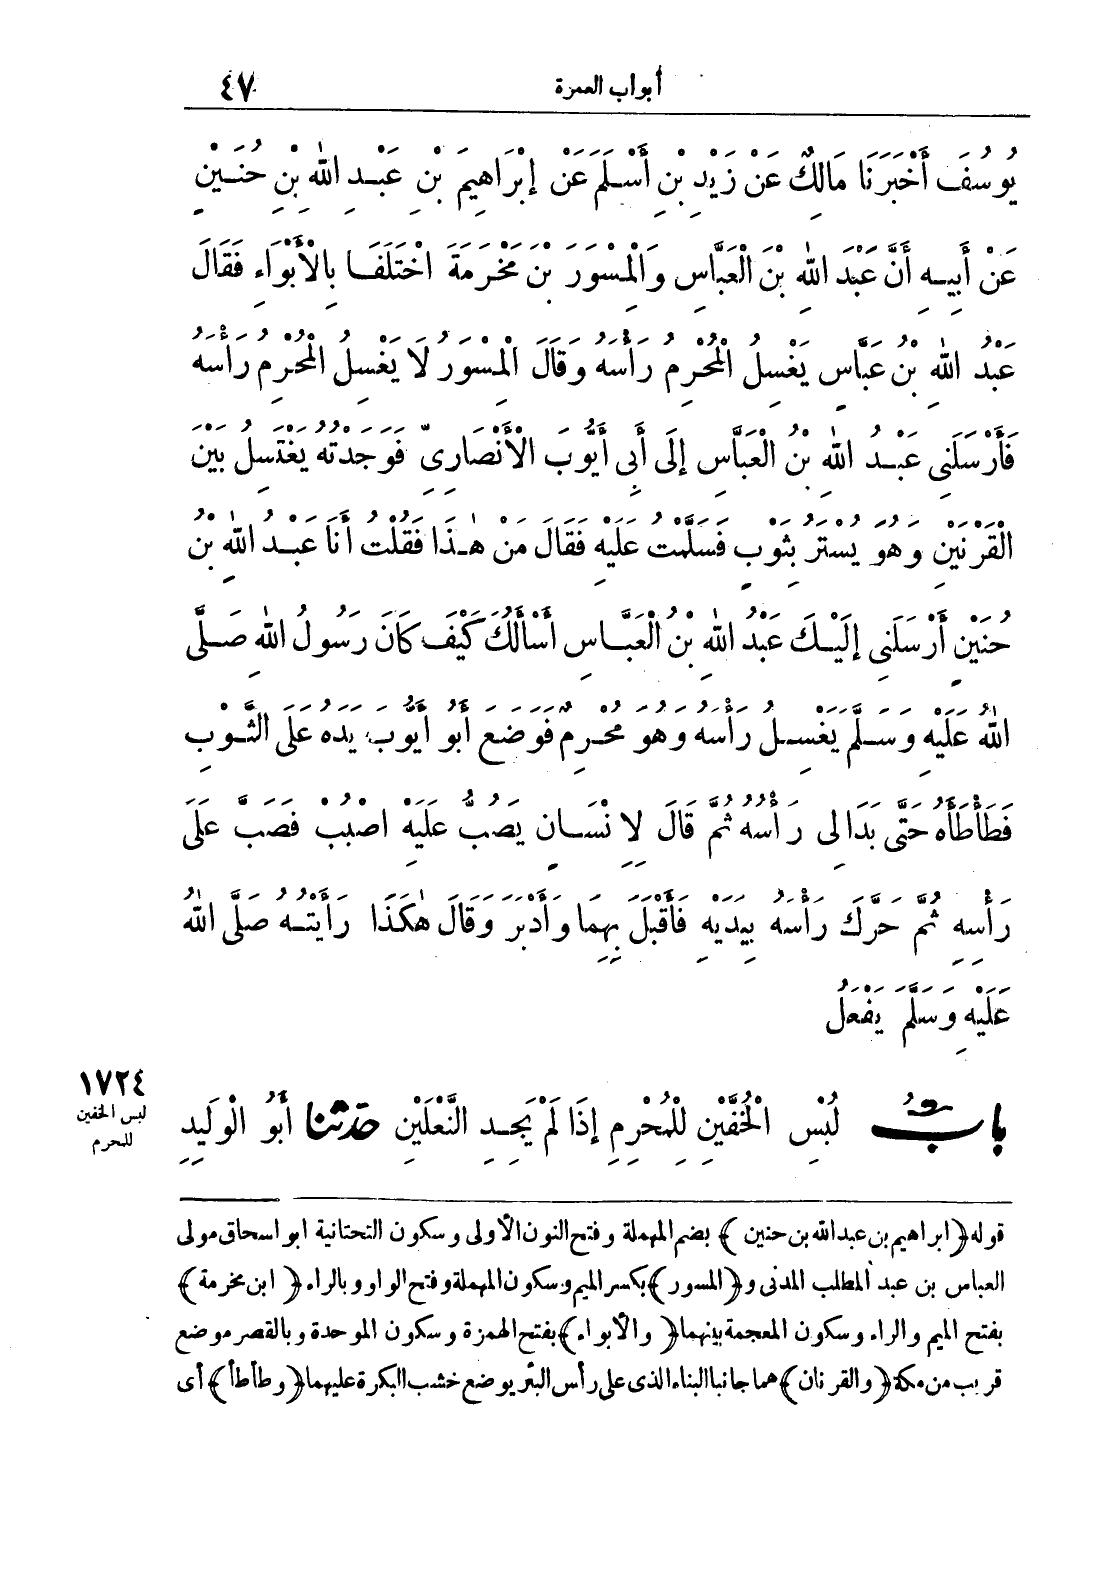 أبواب العمرة ٤٧
يُوسُفَ أَخْبَرَنَا مَالِكٌ عَنْ زَيْدِ بْنِ أَسْلَمَ عَنْ إِبْرَاهِيمَ بْنِ عَبْدِ اللّٰهِ بْنِ حُنَيْنٍ
عَنْ أَبِيهِ أَنَّ عَبْدَ اللّٰهِ بْنَ الْعَبَّاسِ وَالْمِسْوَرَ بْنَ مَخْرَمَةَ اخْتَلَفَا بِالْأَبْوَاءِ فَقَالَ
عَبْدُ اللّٰهِ بْنُ عَبَّاسٍ يَغْسِلُ الْمُحْرِمُ رَأْسَهُ وَقَالَ الْمِسْوَرُ لَا يَغْسِلُ الْمُحْرِمُ رَأْسَهُ
فَأَرْسَلَنِي عَبْدُ اللّٰهِ بْنُ الْعَبَّاسِ إِلَى أَبِي أَيُّوبَ الْأَنْصَارِيِّ فَوَجَدْتُهُ يَغْتَسِلُ بَيْنَ
الْقَرْنَيْنِ وَهُوَ يُسْتَرُ بِثَوْبٍ فَسَلَّمْتُ عَلَيْهِ فَقَالَ مَنْ هٰذَا فَقُلْتُ أَنَا عَبْدُ اللّٰهِ بْنُ
حُنَيْنٍ أَرْسَلَنِي إِلَيْكَ عَبْدُ اللّٰهِ بْنُ الْعَبَّاسِ أَسْأَلُكَ كَيْفَ كَانَ رَسُولُ اللّٰهِ صَلَّى
اللّٰهُ عَلَيْهِ وَسَلَّمَ يَغْسِلُ رَأْسَهُ وَهُوَ مُحْرِمٌ فَوَضَعَ أَبُو أَيُّوبَ يَدَهُ عَلَى الثَّوْبِ
فَطَأْطَأَهُ حَتَّى بَدَا لِي رَأْسُهُ ثُمَّ قَالَ لِإِنْسَانٍ يَصُبُّ عَلَيْهِ اصْبُبْ فَصَبَّ عَلَى
رَأْسِهِ ثُمَّ حَرَّكَ رَأْسَهُ بِيَدَيْهِ فَأَقْبَلَ بِهِمَا وَأَدْبَرَ وَقَالَ هٰكَذَا رَأَيْتُهُ صَلَّى اللّٰهُ
عَلَيْهِ وَسَلَّمَ يَفْعَلُ
١٧٢٤
لبس الخفين
للمحرم
بابُ لُبْسِ الْخُفَّيْنِ لِلْمُحْرِمِ إِذَا لَمْ يَجِدِ النَّعْلَيْنِ حدثنا أَبُو الْوَلِيدِ
قوله ﴿ابراهيم بن عبدالله بن حنين﴾ بضم المهملة وفتح النون الأولى وسكون التحتانية ابو اسحاق مولى
العباس بن عبد المطلب المدنى و﴿المسور﴾ بكسر الميم وسكون المهملة وفتح الواو وبالراء ﴿ابن مخرمة﴾
بفتح الميم والراء وسكون المعجمة بينهما ﴿والأبواء﴾ بفتح الهمزة وسكون الموحدة وبالقصر موضع
قريب من مكة ﴿والقرنان﴾ هما جانبا البناء الذى على رأس البئر يوضع خشب البكرة عليهما ﴿وطأطأ﴾ أى